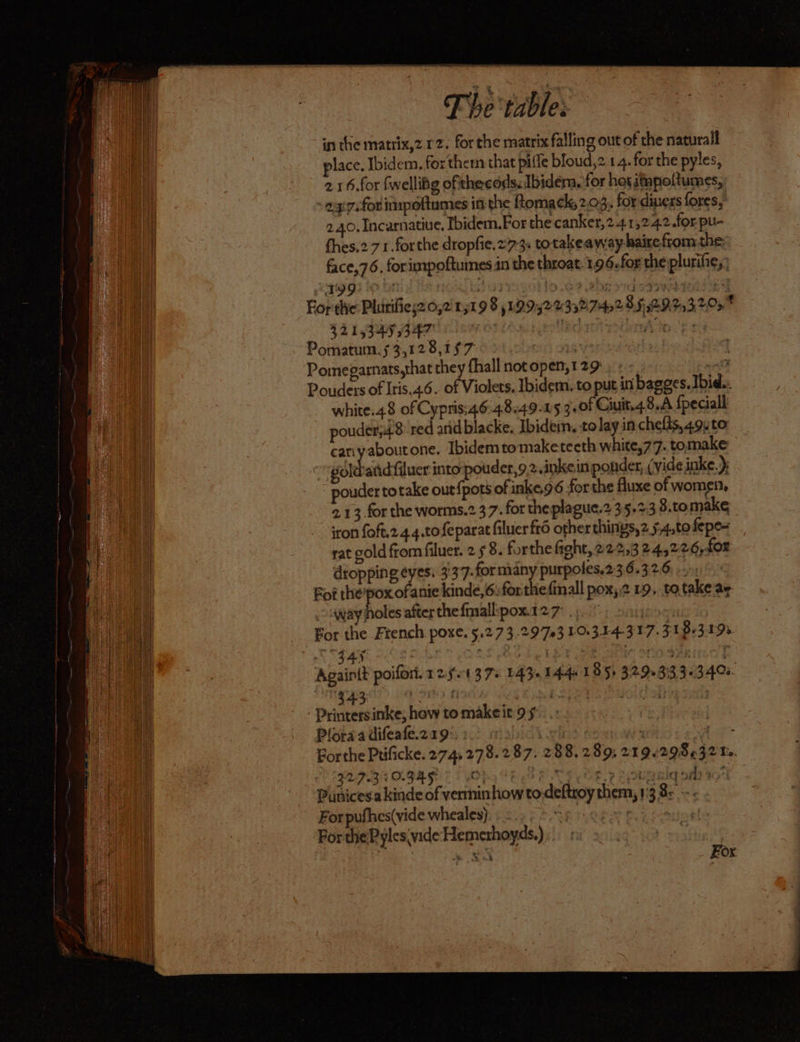 The table.
in the matrix,212. for the matrix falling out of the naturall
place. Ibidem. for them that pisse bloud,214. for the pyles,
216. for swelling of the cods. Ibidem. for hot impostumes,
217. for impostumes in the stomack, 203. for diuers sores,
240. Incarnatiue, Ibidem. For the canker, 241,242. for pu-
shes.271. for the dropsie.273. to take away haire from the
face,76. for impostumes in the throat.196. for the plurisie,
199.
For the Plurisie,20,21,198,199,223,274,285,292,320,
321,345,347
Pomatum.53,128,157
Pomegarnats,that they shall not open,129
Pouders of Iris.46. of Violets. Ibidem. to put in bagges. Ibid.
white.48 of Cypris.46.48.49.153. of Ciuit.48. A speciall
pouder,48 red and blacke. Ibidem. to lay in chests,49. to
cary about one. Ibidem to make teeth white,77. to make
gold and siluer into pouder,92. inke in ponder, (vide inke.)
pouder to take out spots of inke,96 for the fluxe of women,
213. for the worms.237. for the plague.235.238. to make
iron soft.244. to separat siluer frō other things,254, to sepe-
rat gold from siluer. 258. for the sight, 222,324,226, for
dropping eyes. 337. for many purposes,236.326
For the pox of anie kinde,6. for the small pox,219. to take a-
way holes after the small pox.127
For the French poxe. 5.273.297,310.314.317.318.319.
345
Against poison. 125.137. 143.144. 185. 329.333.340.
343
Printers inke, how to make it 95
Plora a disease.219.
For the Ptisicke. 274. 278. 287. 288. 289. 219.298.321.
327.330.345
Punices a kinde of vermin how to destroy them, 138.
For pushes(vide wheales).
For the Pyles,vide Hemerhoyds.)
For